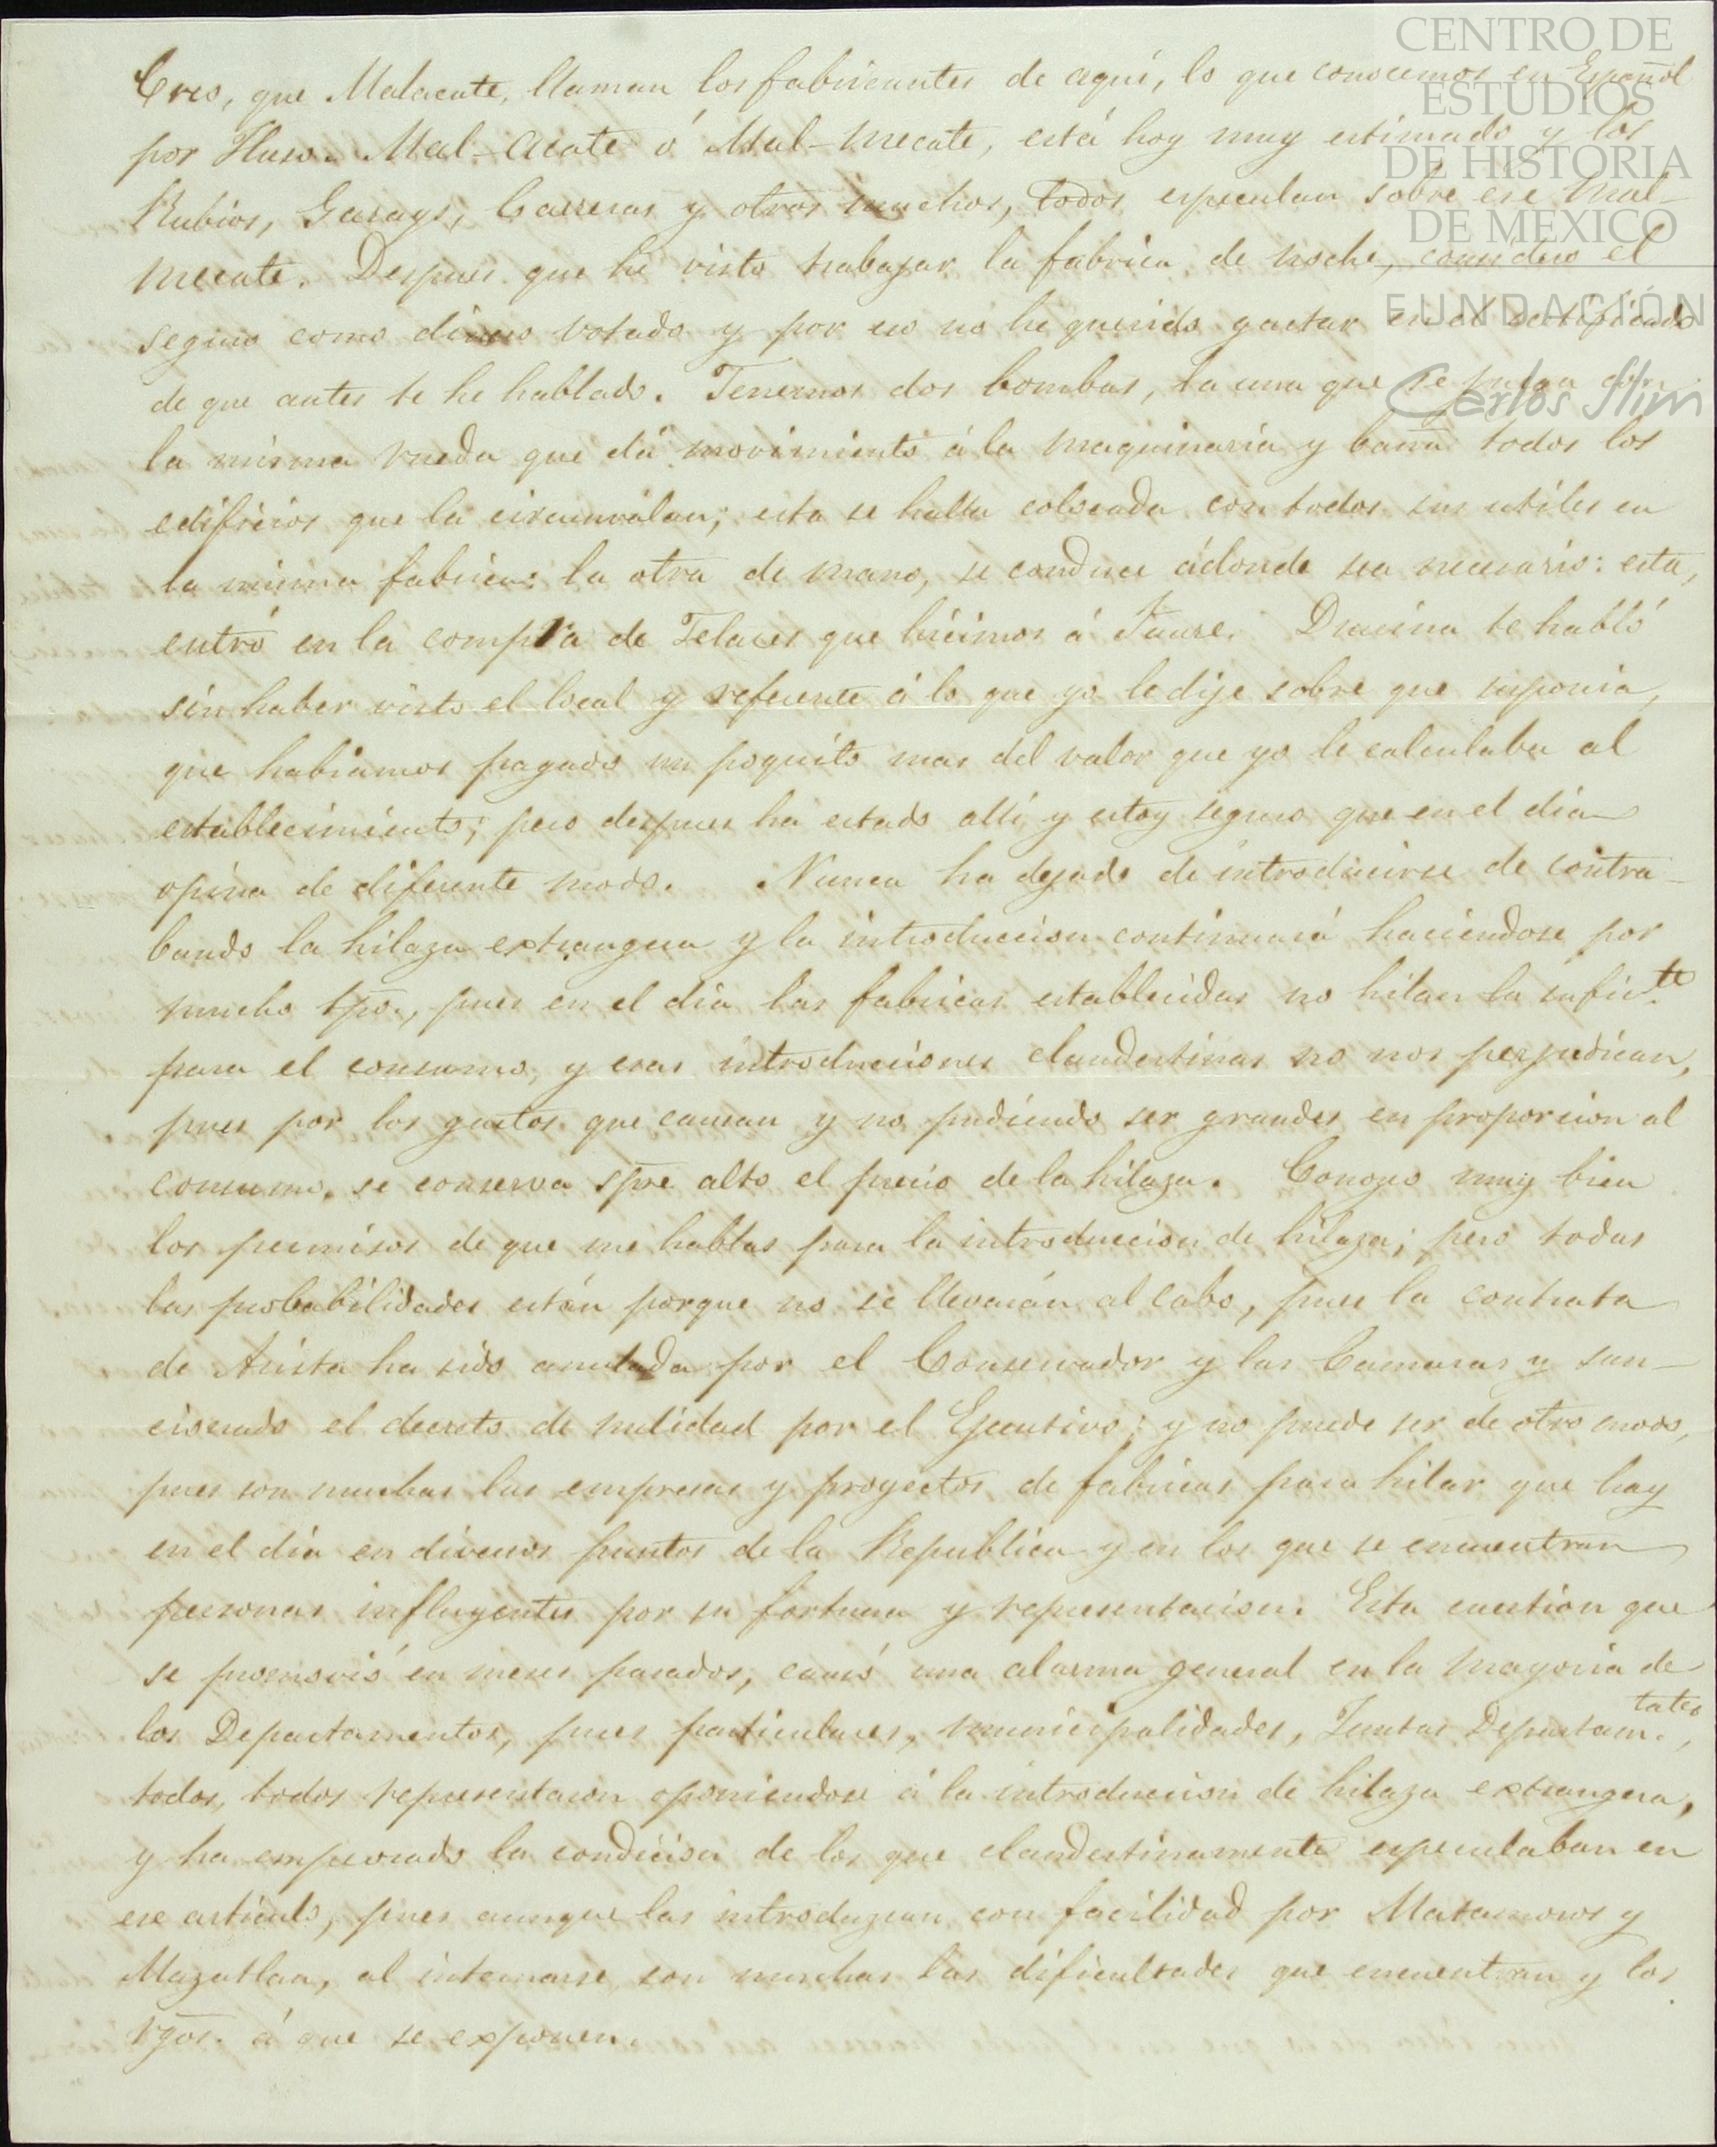 CENTRO DE
ESTUDIOS
DE HISTORIA
DE MEXICO
FUNDACIÓN
Carlos Slim
Creo, que Malacate, llaman los fabricantes de aquí, lo que conocemos en Español
por Huso. Mal-acate ó Mal-mecate, está hoy muy estimado y los
Rubios, Garays, Carreras y otros muchos, todos especulan sobre ese Mal-
mecate. Despues que hé visto trabajar la fabrica de noche, considero el
seguro como dinero botado y por eso no he querido gastar en el certificado
de que antes te he hablado. Tenemos dos bombas, la una que se juega con
la misma rueda que dá movimiento á la maquinaria y baña todos los
edificios que la circunvalan; esta se halla colocada con todos sus utiles en
la misma fabrica: la otra de mano, se conduce ádonde sea necesario: esta,
entró en la compra de Telares que hicimos á Faure. Dracina te habló
sin haber visto el local y referente á lo que yo le dije sobre que suponia,
que habiamos pagado un poquito mas del valor que yo le calculaba al
establecimiento; pero despues ha estado alli y estoy seguro que en el dia
opina de diferente modo. Nunca ha dejado de introducirse de contra-
bando la hilaza extrangera y la introduccion continuará haciendose por
mucho tpo., pues en el dia las fabricas establecidas no hilan la sufic.te
para el consumo, y esas introducciones clandestinas no nos perjudican,
pues por los gastos que causan y no pudiendo ser grandes en proporcion al
consumo, se conserva spre alto el precio de la hilaza. Conozco muy bien
los permisos de que me hablas para la introduccion de hilaza; pero todas
las probabilidades están porque no se llevarán al cabo, pues la contrata
de Arista ha sido anulada por el Conservador y las Camaras y san-
cionado el decreto de nulidad por el Ejecutivo; y no puede ser de otro modo,
pues son muchas las empresas y proyectos de fabricas para hilar que hay
en el dia en diversos puntos de la Republica y en los que se encuentran
personas influyentes por su fortuna y representacion. Esta cuestion que
se promovió en meses pasados, causó una alarma general en la mayoria de
los Departamentos, pues particulares, municipalidades, Juntas Departam.tales,
todos, todos representaron oponiendose á la introduccion de hilaza extrangera,
y ha empeorado la condicion de los que clandestinamente especulaban en
ese articulo, pues aunque las introduzcan con facilidad por Matamoros y
Mazatlan, al internarse son muchas las dificultades que encuentran y los
rgos. á que se exponen.